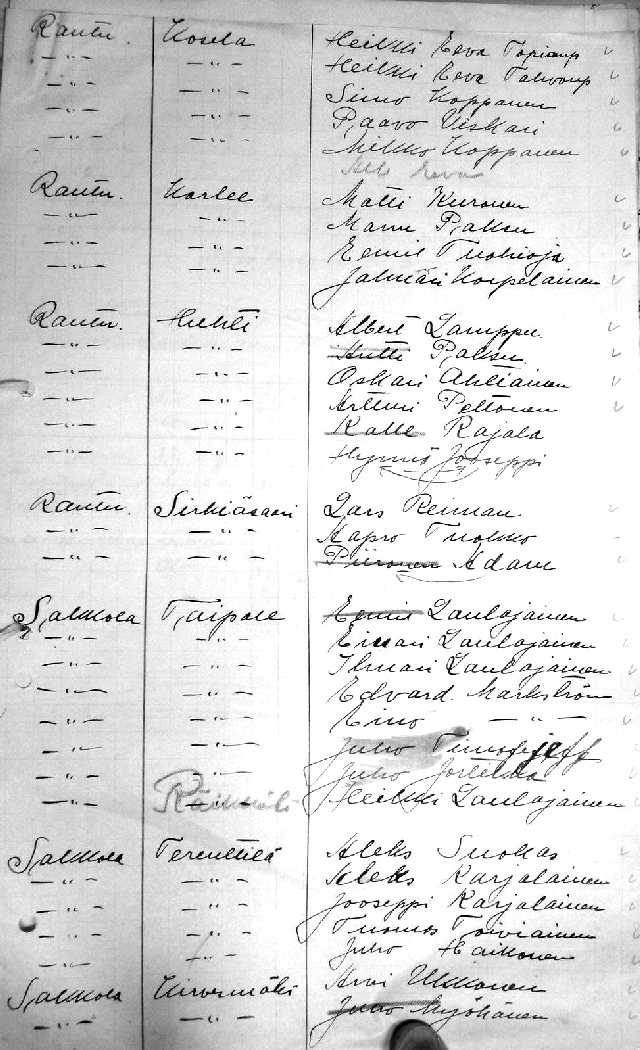 Rautu. Kosela Heikki Eeva Tapionp
— " — — " — Heikki Eeva Tahvonp
— " — — " — Simo Koppanen
— " — — " — Paavo Viskari
— " — — " — Mikko Koppanen
Eeva
Rautu. Korlee Matti Kuronen
— " — — " — Mannu Paksu
— " — — " — Eemil Tuokioja
— " — — " — Jalmari Korpelainen
Rautu. Huhti Albert Lamppu.
— " — — " — Antti Paksu
— " — — " — Oskari Ahtiainen
— " — — " — Artturi Peltonen
— " — — " — Kalle Rajala
— " — — " — Jooseppi
Rautu. Sirkiäsaari Lars Reiman.
— " — — " — Kapro Tuokko
— " — — " — Piironen Adam
Salkkola Taipale Eemil Laulajainen
— " — — " — Einari Laulajainen
— " — — " — Ilmari Laulajainen
— " — — " — Edvard. Markström
— " — — " — Eino — " —
— " — — " — Juho Timofejeff
— " — Juho
— " — Räikmäki Heikki Laulajainen
Salkkola Terenttilä Aleks Suokas
— " — — " — Aleks Karjalainen
— " — — " — Jooseppi Karjalainen
— " — — " — Tuomas Toiviainen
— " — — " — Juho Haikonen
Salkkola Kirvesmäki Arvi Ukkonen
— " — — " — Juho Myöhänen